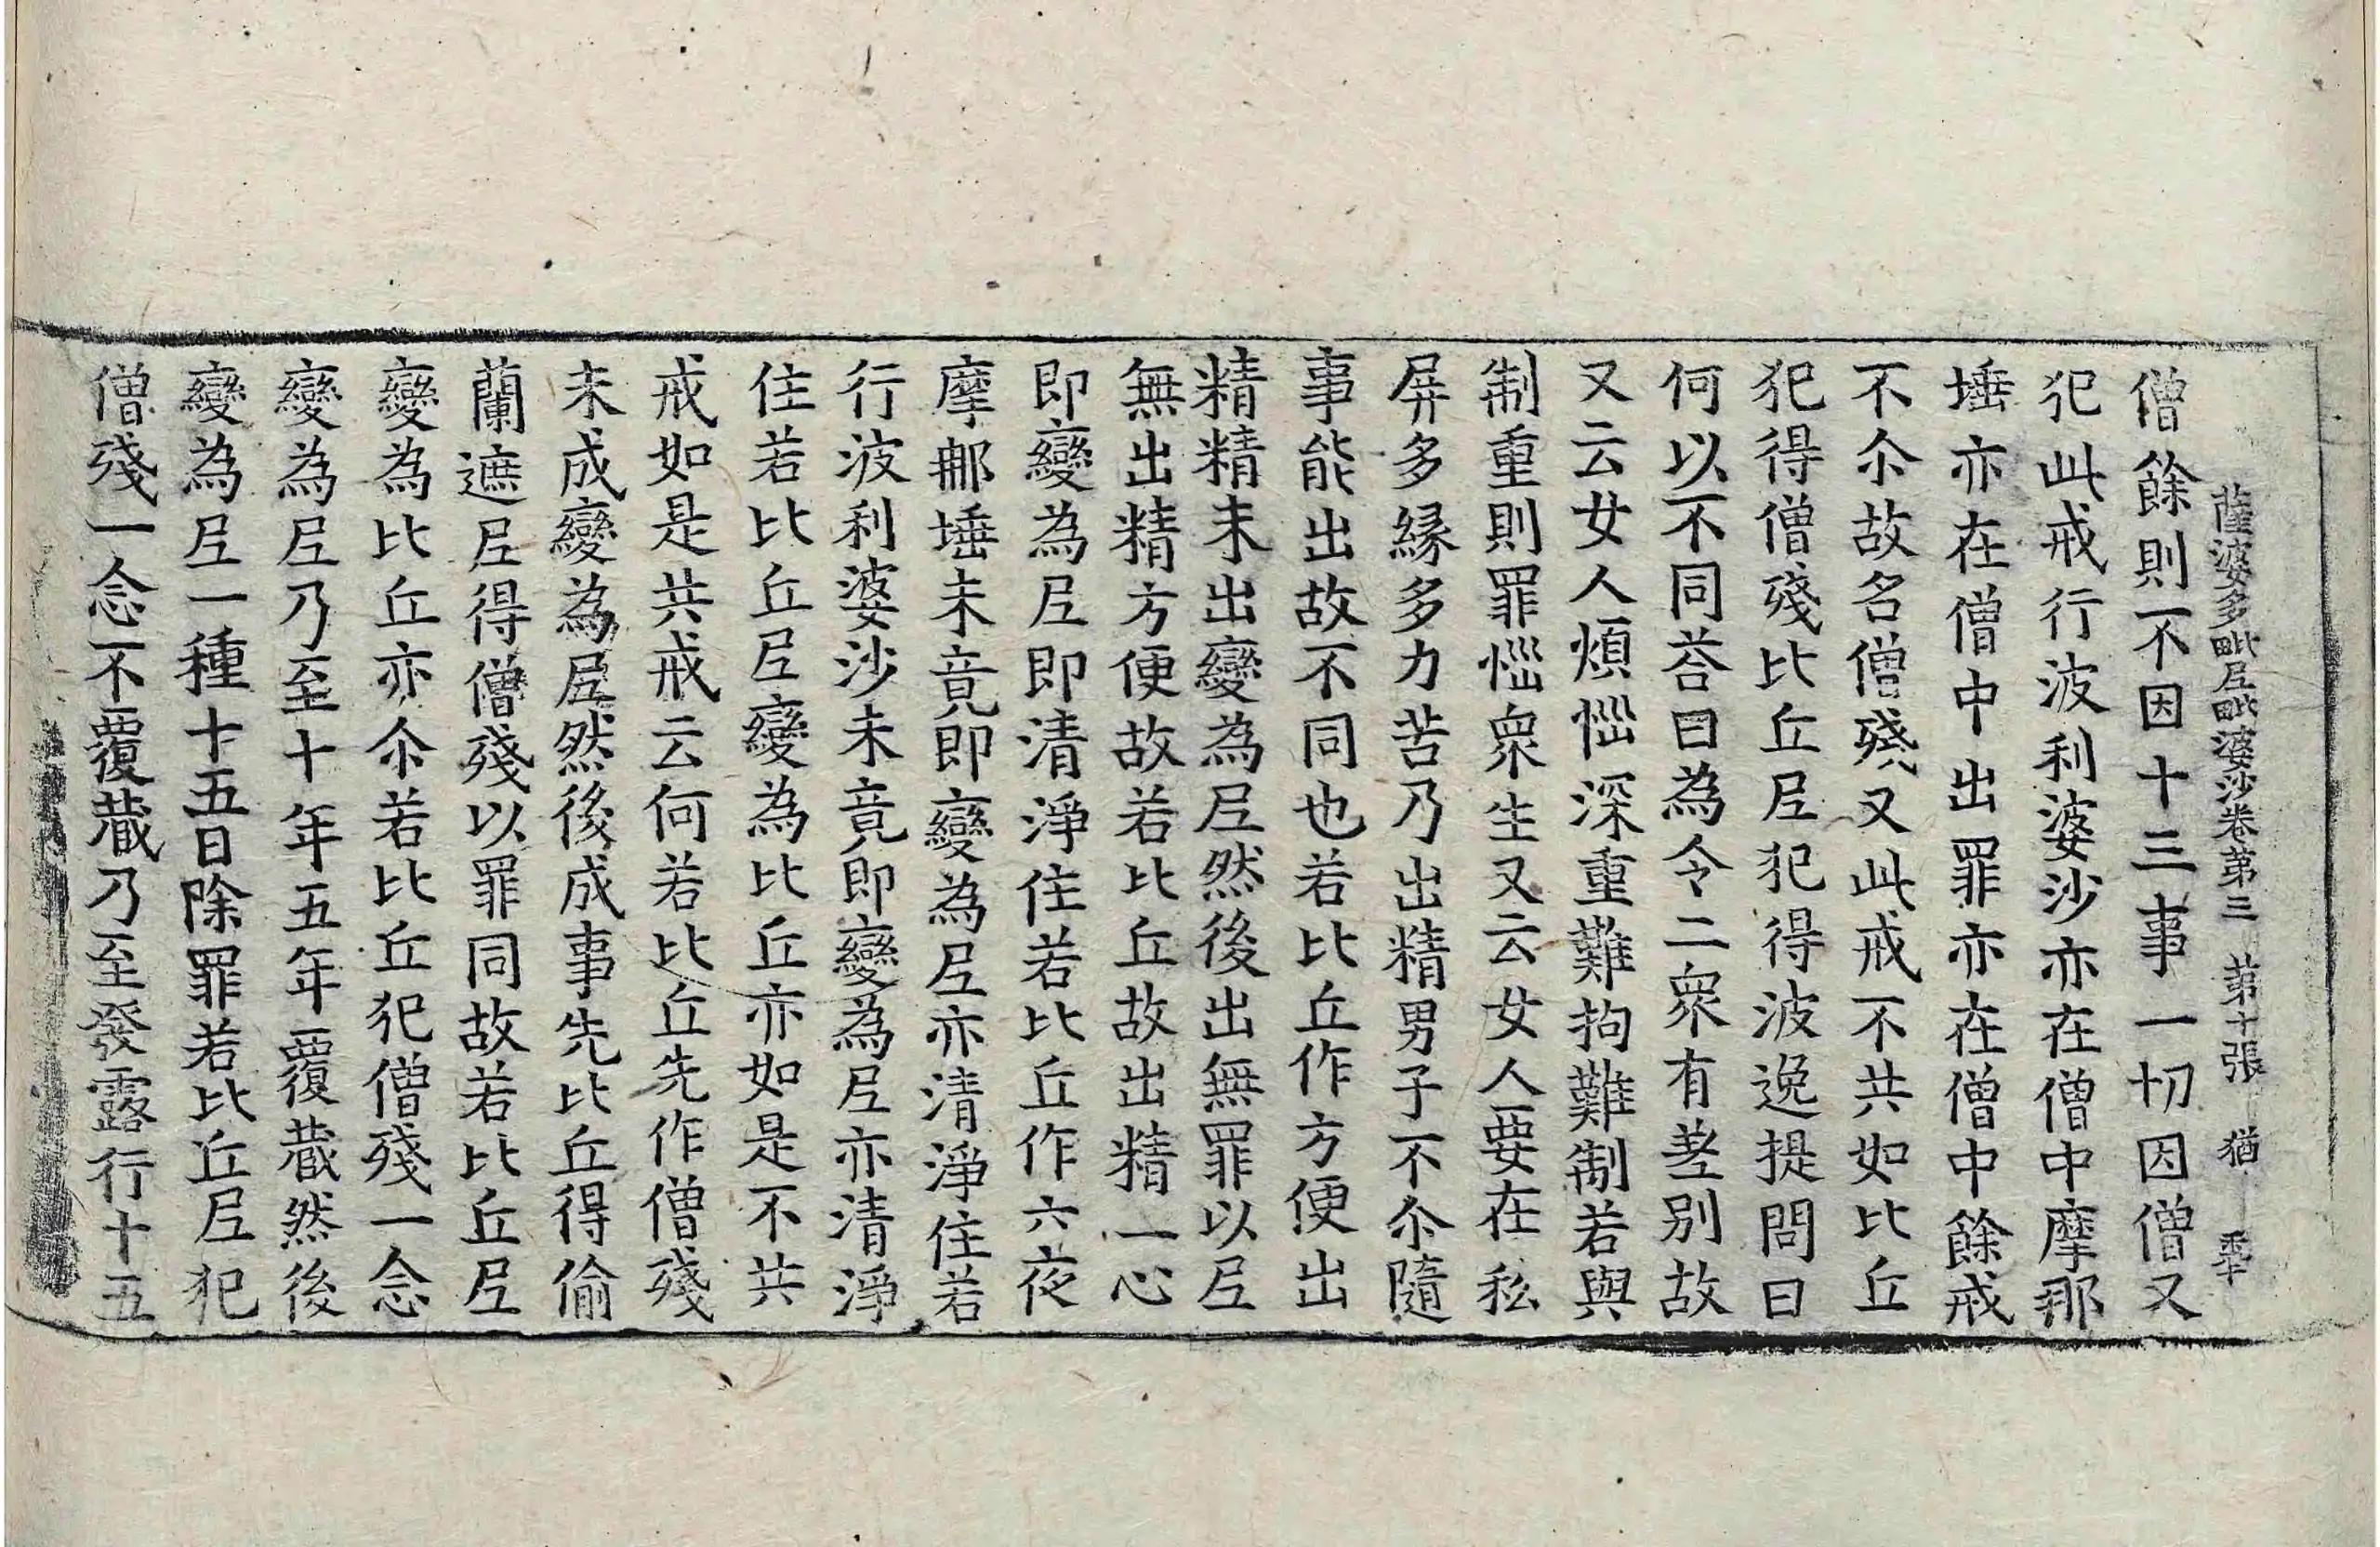 薩婆多毗尼毗婆沙卷第三　第十張　猶
僧餘則不因十三事一切因僧又
犯此戒行波利婆沙亦在僧中摩那
埵亦在僧中出罪亦在僧中餘戒
不尒故名僧殘又此戒不共如比丘
犯得僧殘比丘尼犯得波逸提問曰
何以不同荅曰為令二衆有差別故
又云女人煩惱深重難拘難制若與
制重則罪惱衆生又云女人要在私
屏多緣多力苦乃出精男子不尒隨
事能出故不同也若比丘作方便出
精精未出變為尼然後出無罪以尼
無出精方便故若比丘故出精一心
即變為尼即清淨住若比丘作六夜
摩那埵未竟即變為尼亦清淨住若
行波利婆沙未竟即變為尼亦清淨
住若比丘尼變為比丘亦如是不共
戒如是共戒云何若比丘先作僧殘
未成變為尼然後成事先比丘得偷
蘭遮尼得僧殘以罪同故若比丘尼
變為比丘亦尒若比丘犯僧殘一念
變為尼乃至十年五年覆藏然後
變為尼一種十五日除罪若比丘尼犯
僧殘一念不覆藏乃至發露行十五